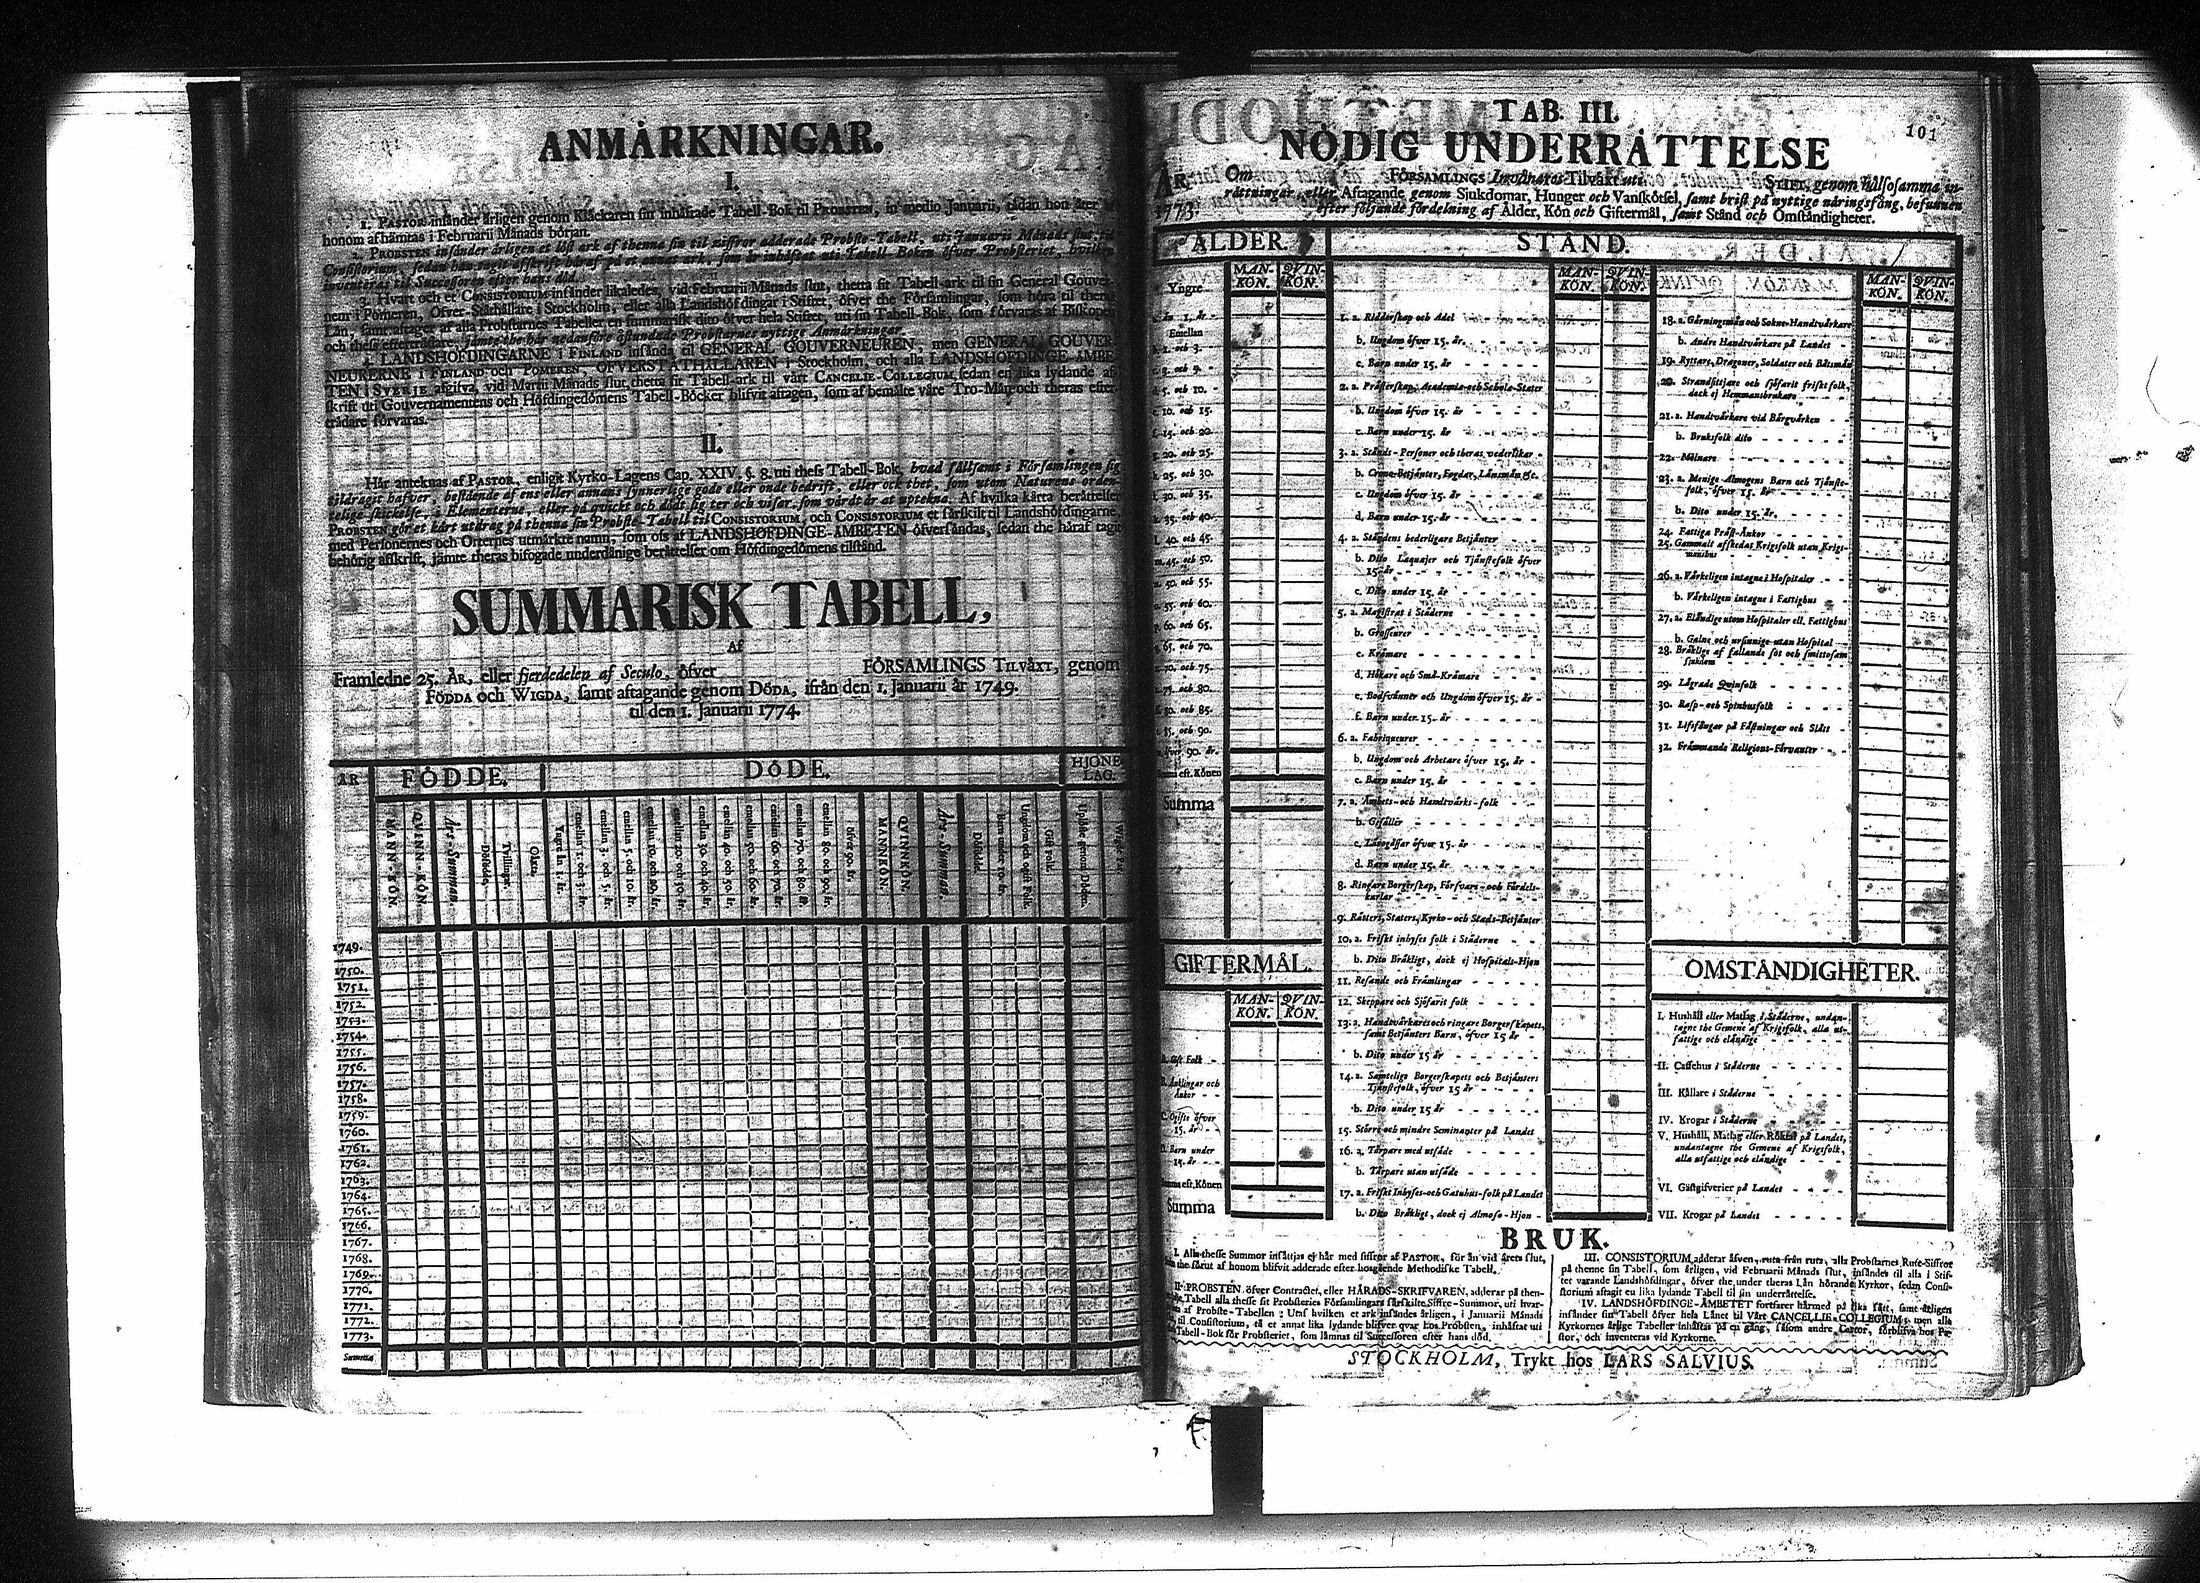 ANMÄRKNINGAR.
I.
1. PASTOR insänder årligen genom Klåckaren sin inbäftade Tabell-Bok til PROBSTEN, in medio Januarii, sädan hon åter af
honom afhämtas i Februarii Månads början.
2. PROBSTEN insänder årligen et löst ark af thenna sin til ziffror adderade Probste-Tabell, uti Januarii Månads slut, til
Consistorium, sedan han tagit afskrift häraf på et annat ark, som är inhäftat uti Tabell-Boken öfver Probsteriet, hvilken
inventeras til Successoren efter hans död.
3. Hvart och et CONSISTORIUM insänder likaledes, vid Februarii Månads slut, thetta sit Tabell-ark til sin General Gouver-
neur i Pomeren, Öfver-Ståthållare i Stockholm, eller alla Landshöfdingar i Stiftet, öfver the Församlingar, som höra til theras
Län, samt aftager af alla Probstarnes Tabeller en summarisk dito öfver hela Stiftet, uti sin Tabell-Bok, som förvaras af Biskopen
och thess efterträdare, jämte the här nedanföre åstundade Probsternes nyttige Anmärkningar.
4. LANDSHÖFDINGARNE I FINLAND insända til GENERAL GOUVERNEUREN, men GENERAL GOUVER-
NEURERNE I FINLAND och POMEREN, ÖFVERSTÅTHÅLLAREN i Stockholm, och alla LANDSHÖFDINGE-ÄMBE-
TEN I SVERJE afgifva, vid Martii Månads slut, thetta sit Tabell-ark til vårt CANCELIE-COLLEGIUM, sedan en lika lydande af-
skrift uti Gouvernamentens och Höfdingedömens Tabell-Böcker blifvit aftagen, som af bemälte våre Tro-Män och theras efter-
trädare förvaras.
II.
Här anteknas af PASTOR, enligit Kyrko-Lagens Cap. XXIV. §. 8. uti thess Tabell-Bok, hvad sällsamt i Församlingen sig
tildragit hafver, bestående af ens eller annans synnerlige gode eller onde bedrift, eller ock thet, som utom Naturens orden-
telige skickelse, i Elementerne, eller på qvickt och dödt sig ter och visar, som värdt är at uptekna. Af hvilka kårta berättelser
PROBSTEN gör et kårt utdrag på thenna sin Probste-Tabell til CONSISTORIUM, och CONSISTORIUM et särskilt til Landshöfdingarne,
med Personernes och Orternes utmärkte namn, som oss af LANDSHÖFDINGE-ÄMBETEN öfversändas, sedan the häraf tagit
behörig afskrift, jämte theras bifogade underdånige berättelser om Höfdingedömens tilstånd.
SUMMARISK TABELL,
Af
Framledne 25. ÅR, eller fjerdedelen af Seculo, öfver FÖRSAMLINGS TILVÄXT, genom
FÖDDA och WIGDA, samt aftagande genom DÖDA, ifrån den 1. Januarii år 1749.
til den 1. Januarii 1774.
ÅR FÖDDE. DÖDE. HJONE-LAG.
MANN-KÖN. QUINN-KÖN. Års-Summan. Dödfödde. Tvillingar. Oäkta. Yngre än 1. år. emellan 1. och 3. år. emellan 3. och 5. år. emellan 5. och 10. år. emellan 10. och 20. år. emellan 20. och 30. år. emellan 30. och 40. år. emellan 40. och 50. år. emellan 50. och 60. år. emellan 60. och 70. år. emellan 70. och 80. år. emellan 80. och 90. år. öfver 90. år. MANNKÖN. QVINNKÖN. Års-Summan. Dödfödde. Barn under 10. år. Ungdom och ogift Folk. Gift Folk. Uplöste genom Döden.
1749.
1750.
1751.
1752.
1753.
1754.
1755.
1756.
1757.
1758.
1759.
1760.
1761.
1762.
1763.
1764.
1765.
1766.
1767.
1768.
1769.
1770.
1771.
1772.
1773.
Summa
101
TAB. III.
NÖDIG UNDERRÄTTELSE
ÅR 1773. Om FÖRSAMLINGS Invånares Tilväxt uti STIFT, genom hälsosamma in-
rättningar, eller Aftagande genom Sjukdomar, Hunger och Vanskötsel, samt brist på nyttige näringsfång, befunnen
efter följande fördelning af Ålder, Kön och Giftermål, samt Stånd och Omständigheter.
ÅLDER.
MAN-KÖN. QVIN-KÖN.
Yngre
än 1. år
Emellan
1. och 3.
3. och 5.
5. och 10.
10. och 15.
15. och 20.
20. och 25.
25. och 30.
30. och 35.
35. och 40.
40. och 45.
45. och 50.
50. och 55.
55. och 60.
60. och 65.
65. och 70.
70. och 75.
75. och 80.
80. och 85.
85. och 90.
öfver 90. år.
eft. Könen
Summa
GIFTERMÅL.
MAN-KÖN. QVIN-KÖN.
A. Gift Folk
B. Änklingar och
Änkor
C. Ogifte öfver
15. år
D. Barn under
15. år
Summa eft. Könen
Summa
STÅND.
MAN-KÖN. QVIN-KÖN.
1. a. Ridderskap och Adel
b. Ungdom öfver 15. år.
c. Barn under 15. år
2. a. Prästerskap, Academie- och Schole-Stater
b. Ungdom öfver 15. år
c. Barn under 15. år
3. a. Stånds-Personer och theras vederlikar
b. Crono-Betjänter, Fogdar, Länsmän &c.
c. Ungdom öfver 15. år
d. Barn under 15. år
4. a. Ståndens hederligare Betjänter
b. Dito Laquajer och Tjänstefolk öfver
15. år
c. Dito under 15. år
5. a. Magistrat i Städerne
b. Grosseurer
c. Krämare
d. Hökare och Små-Krämare
e. Bodsvänner och Ungdom öfver 15. år
f. Barn under 15. år
6. a. Fabriqueurer
b. Ungdom och Arbetare öfver 15. år
c. Barn under 15. år
7. a. Ämbets- och Handtvärks-folk
b. Gesäller
c. Lärogåssar öfver 15. år
d. Barn under 15. år
8. Ringare Borgerskap, Försvars- och Fördels-
karlar
9. Rätters, Staters, Kyrko- och Stads-Betjänter
10. a. Friskt inhyses folk i Städerne
b. Dito Bräkligt, dock ej Hospitals-Hjon
11. Resande och Främlingar
12. Skeppare och Sjöfarit folk
13. a. Handtvärkares och ringare Borgerskapets,
samt Betjänters Barn, öfver 15 år
b. Dito under 15 år
14. a. Samtelige Borgerskapets och Betjänters
Tjänstefolk, öfver 15 år
b. Dito under 15 år
15. Större och mindre Seminanter på Landet
16. a. Torpare med utsäde
b. Torpare utan utsäde
17. a. Friskt Inhyses- och Gatuhus-folk på Landet
b. Dito Bräkligt, dock ej Almoso-Hjon
MAN-KÖN. QVIN-KÖN.
18. a. Gärningsmän och Sokne-Handtvärkare
b. Andre Handtvärkare på Landet
19. Ryttare, Dragoner, Soldater och Båtsmän
20. Strandsittjare och sjöfarit friskt folk,
dock ej Hemmansbrukare
21. a. Handtvärkare vid Bärgvärken
b. Bruksfolk dito
22. Mölnare
23. a. Menige Almogens Barn och Tjänste-
folk, öfver 15. år
b. Dito under 15. år.
24. Fattiga Präst-Änkor
25. Gammalt afskedat Krigsfolk utan Krigs-
mansbus
26. a. Värkeligen intagne i Hospitaler
b. Värkeligen intagne i Fattighus
27. a. Eländige utom Hospitaler ell. Fattighus
b. Galne och ursinnige utan Hospital
28. Bräklige af fallande sot och smittosam
sjukdom
29. Lägrade Qvinfolk
30. Rasp- och Spinhusfolk
31. Lifsfångar på Fästningar och Slått
32. Främmande Religions-Förvanter
OMSTÄNDIGHETER.
I. Hushåll eller Matlag i Städerne, undan-
tagne the Gemene af Krigsfolk, alla ut-
fattige och eländige
II. Caffehus i Städerne
III. Källare i Städerne
IV. Krogar i Städerne
V. Hushåll, Matlag eller Rökar på Landet,
undantagne the Gemene af Krigsfolk,
alla utfattige och eländige
VI. Gästgifverier på Landet
VII. Krogar på Landet
BRUK.
I. Alla thesse Summor insättjas ej här med siffror af PASTOR, för än vid årets slut,
the förut af honom blifvit adderade efter hosgående Methodiske Tabell.
II. PROBSTEN öfver Contractet, eller HÄRADS-SKRIFVAREN, adderar på then-
Tabell alla thesse sit Probsteries Församlingars särskilte Siffre-Summor, uti hvar-
af Probste-Tabellen; Utaf hvilken et ark insändes årligen, i Januarii Månads
til Consistorium, tå et annat lika lydande blifver qvar hos Probsten, inhäftat uti
Tabell-Bok för Probsteriet, som lämnas til Successoren efter hans död.
III. CONSISTORIUM adderar äfven, ruta från ruta, alla Probstarnes Rute-Siffror
på thenne sin Tabell, som årligen, vid Februarii Månads slut, insändes til alla i Stif-
tet varande Landshöfdingar, öfver the under theras Län hörande Kyrkor, sedan Consi-
storium aftagit en lika lydande Tabell til sin underrättelse.
IV. LANDSHÖFDINGE-ÄMBETET fortfarer härmed på lika sätt, samt årligen
insänder sin Tabell öfver hela Länet til Vårt CANCELLIE-COLLEGIUM; men alla
Kyrkornes årlige Tabeller inhäftas på en gång, såsom andre Cartor, förblifva hos Pa-
stor, och inventeras vid Kyrkorne.
STOCKHOLM, Trykt hos LARS SALVIUS.